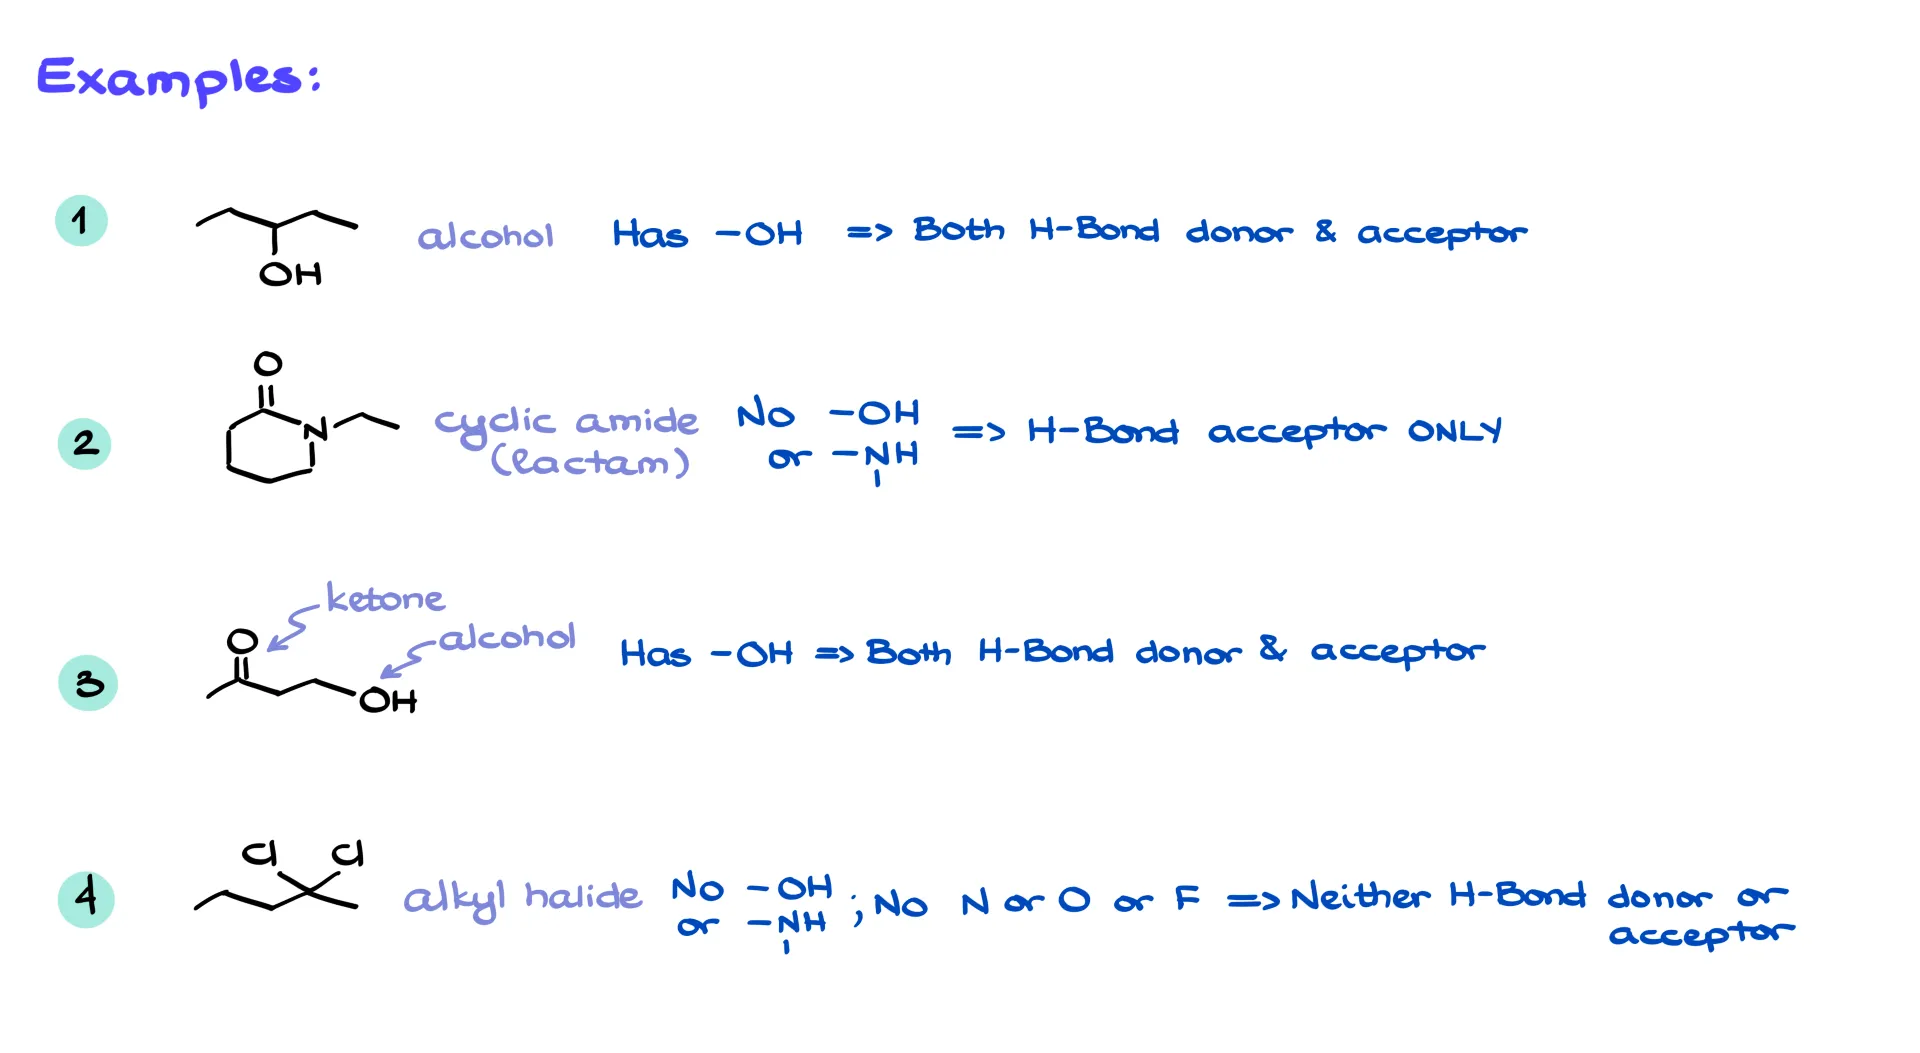 Examples:
1
OH
alcohol Has -OH => Both H-Bond donor & acceptor
2
O
N
cyclic amide
(lactam)
No -OH
or -NH
=> H-Bond acceptor ONLY
3
ketone
O
alcohol
OH
Has -OH => Both H-Bond donor & acceptor
4
Cl Cl
alkyl halide
No -OH
or -NH
; No N or O or F => Neither H-Bond donor or
acceptor